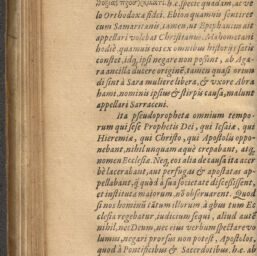 h.e. specie quadam, ac ve
lo Orthodoxæ fidei. Ebion quamvis sentiret
cum Samaritanis, tamen, ut Epiphanius ait
appellari volebat Christianus. Mahometani
hodiè, quamuis eos ex omnibus historijs satis
constet, idq́; ipsi negare non possint, ab Aga-
ra ancilla ducere originē, tamen quasi oriun
di sint à Sara muliere libera, & vocere
hami, nominis ipsius & stirpis causa, malunt
appellari Sarraceni.
Ita pseudopropheta omnium tempo-
rum qui sese Prophetis Dei, qui Iesaiæ, qui
Hieremiæ, qui Christo, qui Apostolis oppo-
nebant, nihil unquam æquè crepabant, atq́;
nomen Ecclesiæ. Neq́; eos alia de causa ita acer
bè lacerabant, aut perfugas & apostatas ap-
pellabant, q̃ quòd à sua societate discessissent,
et instituta maiorum nō observarent. Quod
si nos hominū tātum illorum à q̃bus tum Ec
clesia regebatur, iudicium sequi, aliud autē
nihil, nec Deum, nec eius verbum spectare vo
lumus, negari prorsus non potest, Apostolos,
quod à Pontificibus & Sacerdotibus, h.e. ab